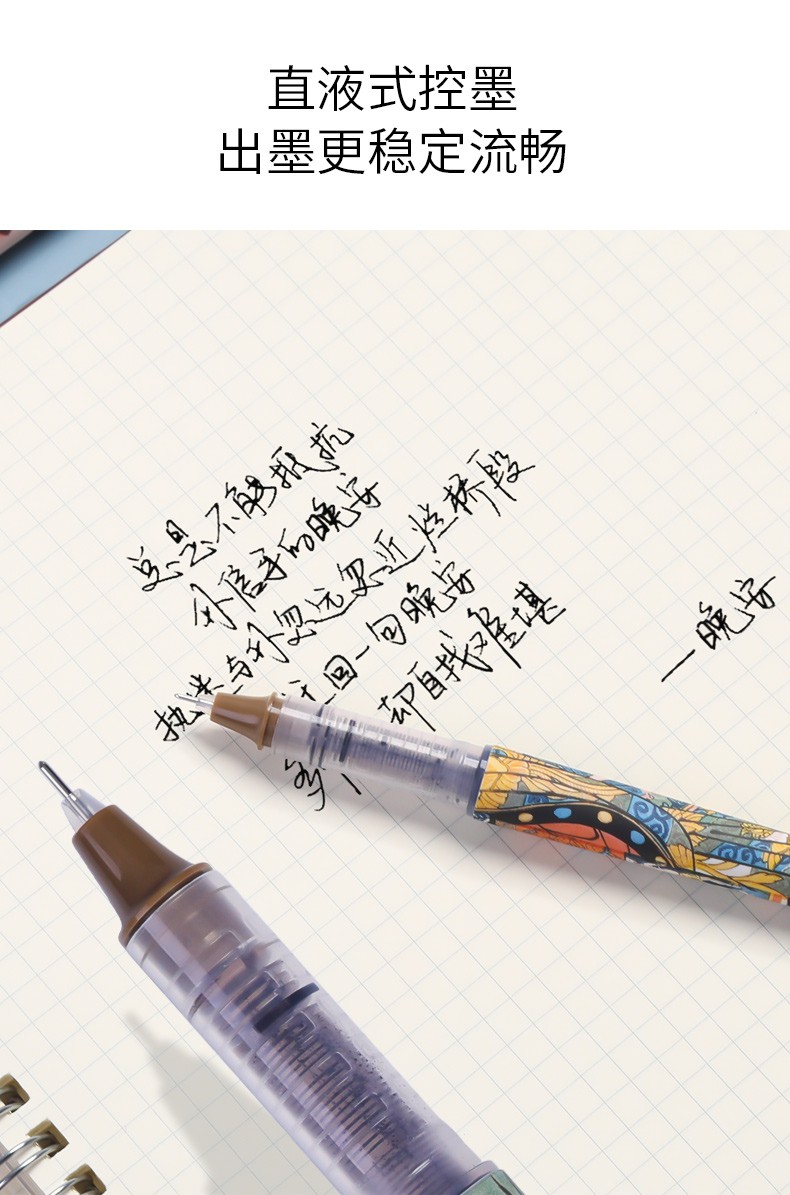 直液式控墨
出墨更稳定流畅
总是不能抵抗
外信手的晚安
执迷与外忽远忽近 烂桥段
回一句晚安
却自找难堪
一晚安